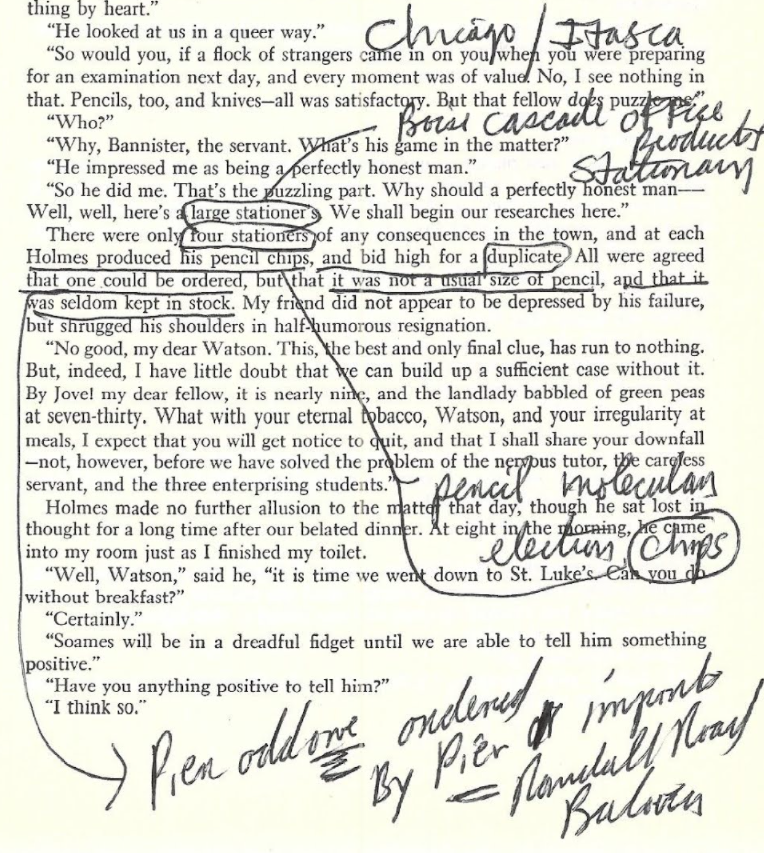 thing by heart."
"He looked at us in a queer way."
Chicago / Itasca
"So would you, if a flock of strangers came in on you when you were preparing
for an examination next day, and every moment was of value. No, I see nothing in
that. Pencils, too, and knives—all was satisfactory. But that fellow does puzzle me."
"Who?"
Boise cascade office
Products
Stationary
"Why, Bannister, the servant. What's his game in the matter?"
"He impressed me as being a perfectly honest man."
"So he did me. That's the puzzling part. Why should a perfectly honest man—
Well, well, here's a large stationer's. We shall begin our researches here."
There were only four stationers of any consequences in the town, and at each
Holmes produced his pencil chips, and bid high for a duplicate. All were agreed
that one could be ordered, but that it was not a usual size of pencil, and that it
was seldom kept in stock. My friend did not appear to be depressed by his failure,
but shrugged his shoulders in half-humorous resignation.
"No good, my dear Watson. This, the best and only final clue, has run to nothing.
But, indeed, I have little doubt that we can build up a sufficient case without it.
By Jove! my dear fellow, it is nearly nine, and the landlady babbled of green peas
at seven-thirty. What with your eternal tobacco, Watson, and your irregularity at
meals, I expect that you will get notice to quit, and that I shall share your downfall
—not, however, before we have solved the problem of the nervous tutor, the careless
servant, and the three enterprising students."
pencil molecular
Holmes made no further allusion to the matter that day, though he sat lost in
thought for a long time after our belated dinner. At eight in the morning, he came
into my room just as I finished my toilet.
election chips
"Well, Watson," said he, "it is time we went down to St. Luke's. Can you do
without breakfast?"
"Certainly."
"Soames will be in a dreadful fidget until we are able to tell him something
positive."
"Have you anything positive to tell him?"
"I think so."
Pier odd one ordered
By Pier imports
Randall Road